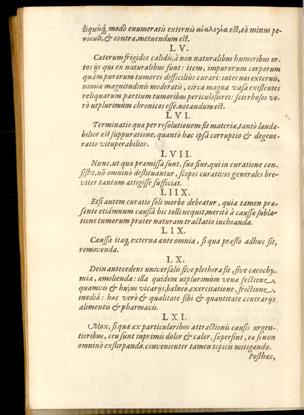 liquisq́, modò enumeratis externis αἰαλογία est, eò minus pe-
riculi, & contra, metuendum est.
LV.
Cæterum frigidos calidis, à non naturalibus humoribus or-
tos ijs qui ex naturalibus sunt: item, impurorum corporum
quàm purorum tumores difficiliùs curari: internos externis,
nimia magnitudinis moderatis, circa magna vasa existentes
reliquarum partium tumoribus periculosiores: scirrhosos ve-
rò utplurimùm chronicos esse, notandum est.
LVI.
Terminatio quæ per resolutionem fit materiæ, tantò lauda-
bilior est suppuratione, quantò hac ipsâ corruptio & degene-
ratio vituperabilior.
LVII.
Nunc, ut quæ præmissa sunt, suo fine, qui in curatione con-
sistit, nō omninò destituantur, scopos curativos generales bre-
viter tantùm attigisse sufficiat.
LIIX.
Etsi autem curatio soli morbo debeatur, quia tamen præ-
sente etiamnum caussâ hic tolli nequit, meritò à caussæ subla-
tione tumorum præter naturam tractatio inchoanda.
LIX.
Caussa itaq, externa ante omnia, si qua præstò adhuc sit,
removenda.
LX.
Dein antecedens universalis sive plethora sit, sive cacochy-
mia, amolienda: illa quidem utplurimùm venæ sectione,
quamvis & hujus vicarijs, balneo, exercitatione, frictione,
inediâ: hæc verò & qualitate sibi & quantitate contrarijs
alimentis & pharmacis.
LXI.
Mox, si quæ ex particularibus attractionis caussis urgen-
tioribus, ceu sunt inprimis dolor & calor, supersint, ea si non
omninò exstirpandæ, convenienter tamen topicis mitigandæ.
Posthæc,